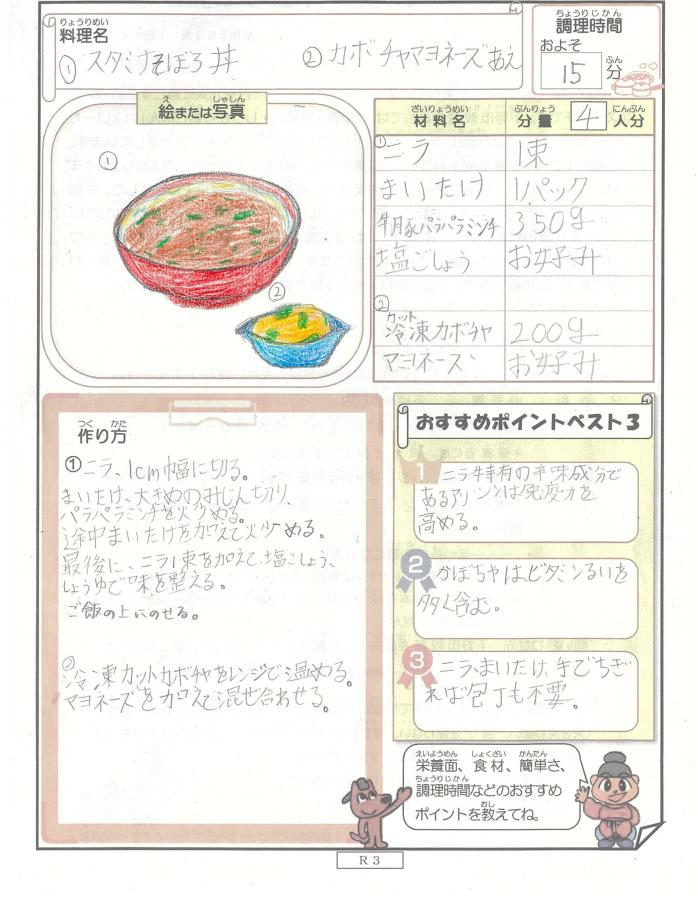 りょうりめい
料理名
①スタミナそぼろ丼 ②カボチャマヨネーズあえ
ちょうりじかん
調理時間
およそ
15 分
ふん
え しゃしん
絵または写真
①
②
ざいりょうめい ぶんりょう にんぶん
材料名 分量 4 人分
①ニラ 1束
まいたけ 1パック
牛豚パラパラミンチ 350g
塩こしょう お好み
②
カット
冷凍カボチャ 200g
マヨネーズ お好み
つく かた
作り方
①ニラ、1cm幅に切る。
まいたけ、大きめのみじん切り、
パラパラミンチを炒める。
途中まいたけを加えて炒める。
最後に、ニラ1束を加えて、塩こしょう、
しょうゆで味を整える。
ご飯の上にのせる。
②
冷凍カットカボチャをレンジで温める。
マヨネーズを加えて混ぜ合わせる。
おすすめポイントベスト3
1
ニラ特有の辛味成分で
あるアリシンは免疫力を
高める。
2
かぼちゃはビタミンるいを
多く含む。
3
ニラ、まいたけ、手でちぎ
れば包丁も不要。
えいようめん しょくざい かんたん
栄養面、食材、簡単さ、
ちょうりじかん
調理時間などのおすすめ
おし
ポイントを教えてね。
R3